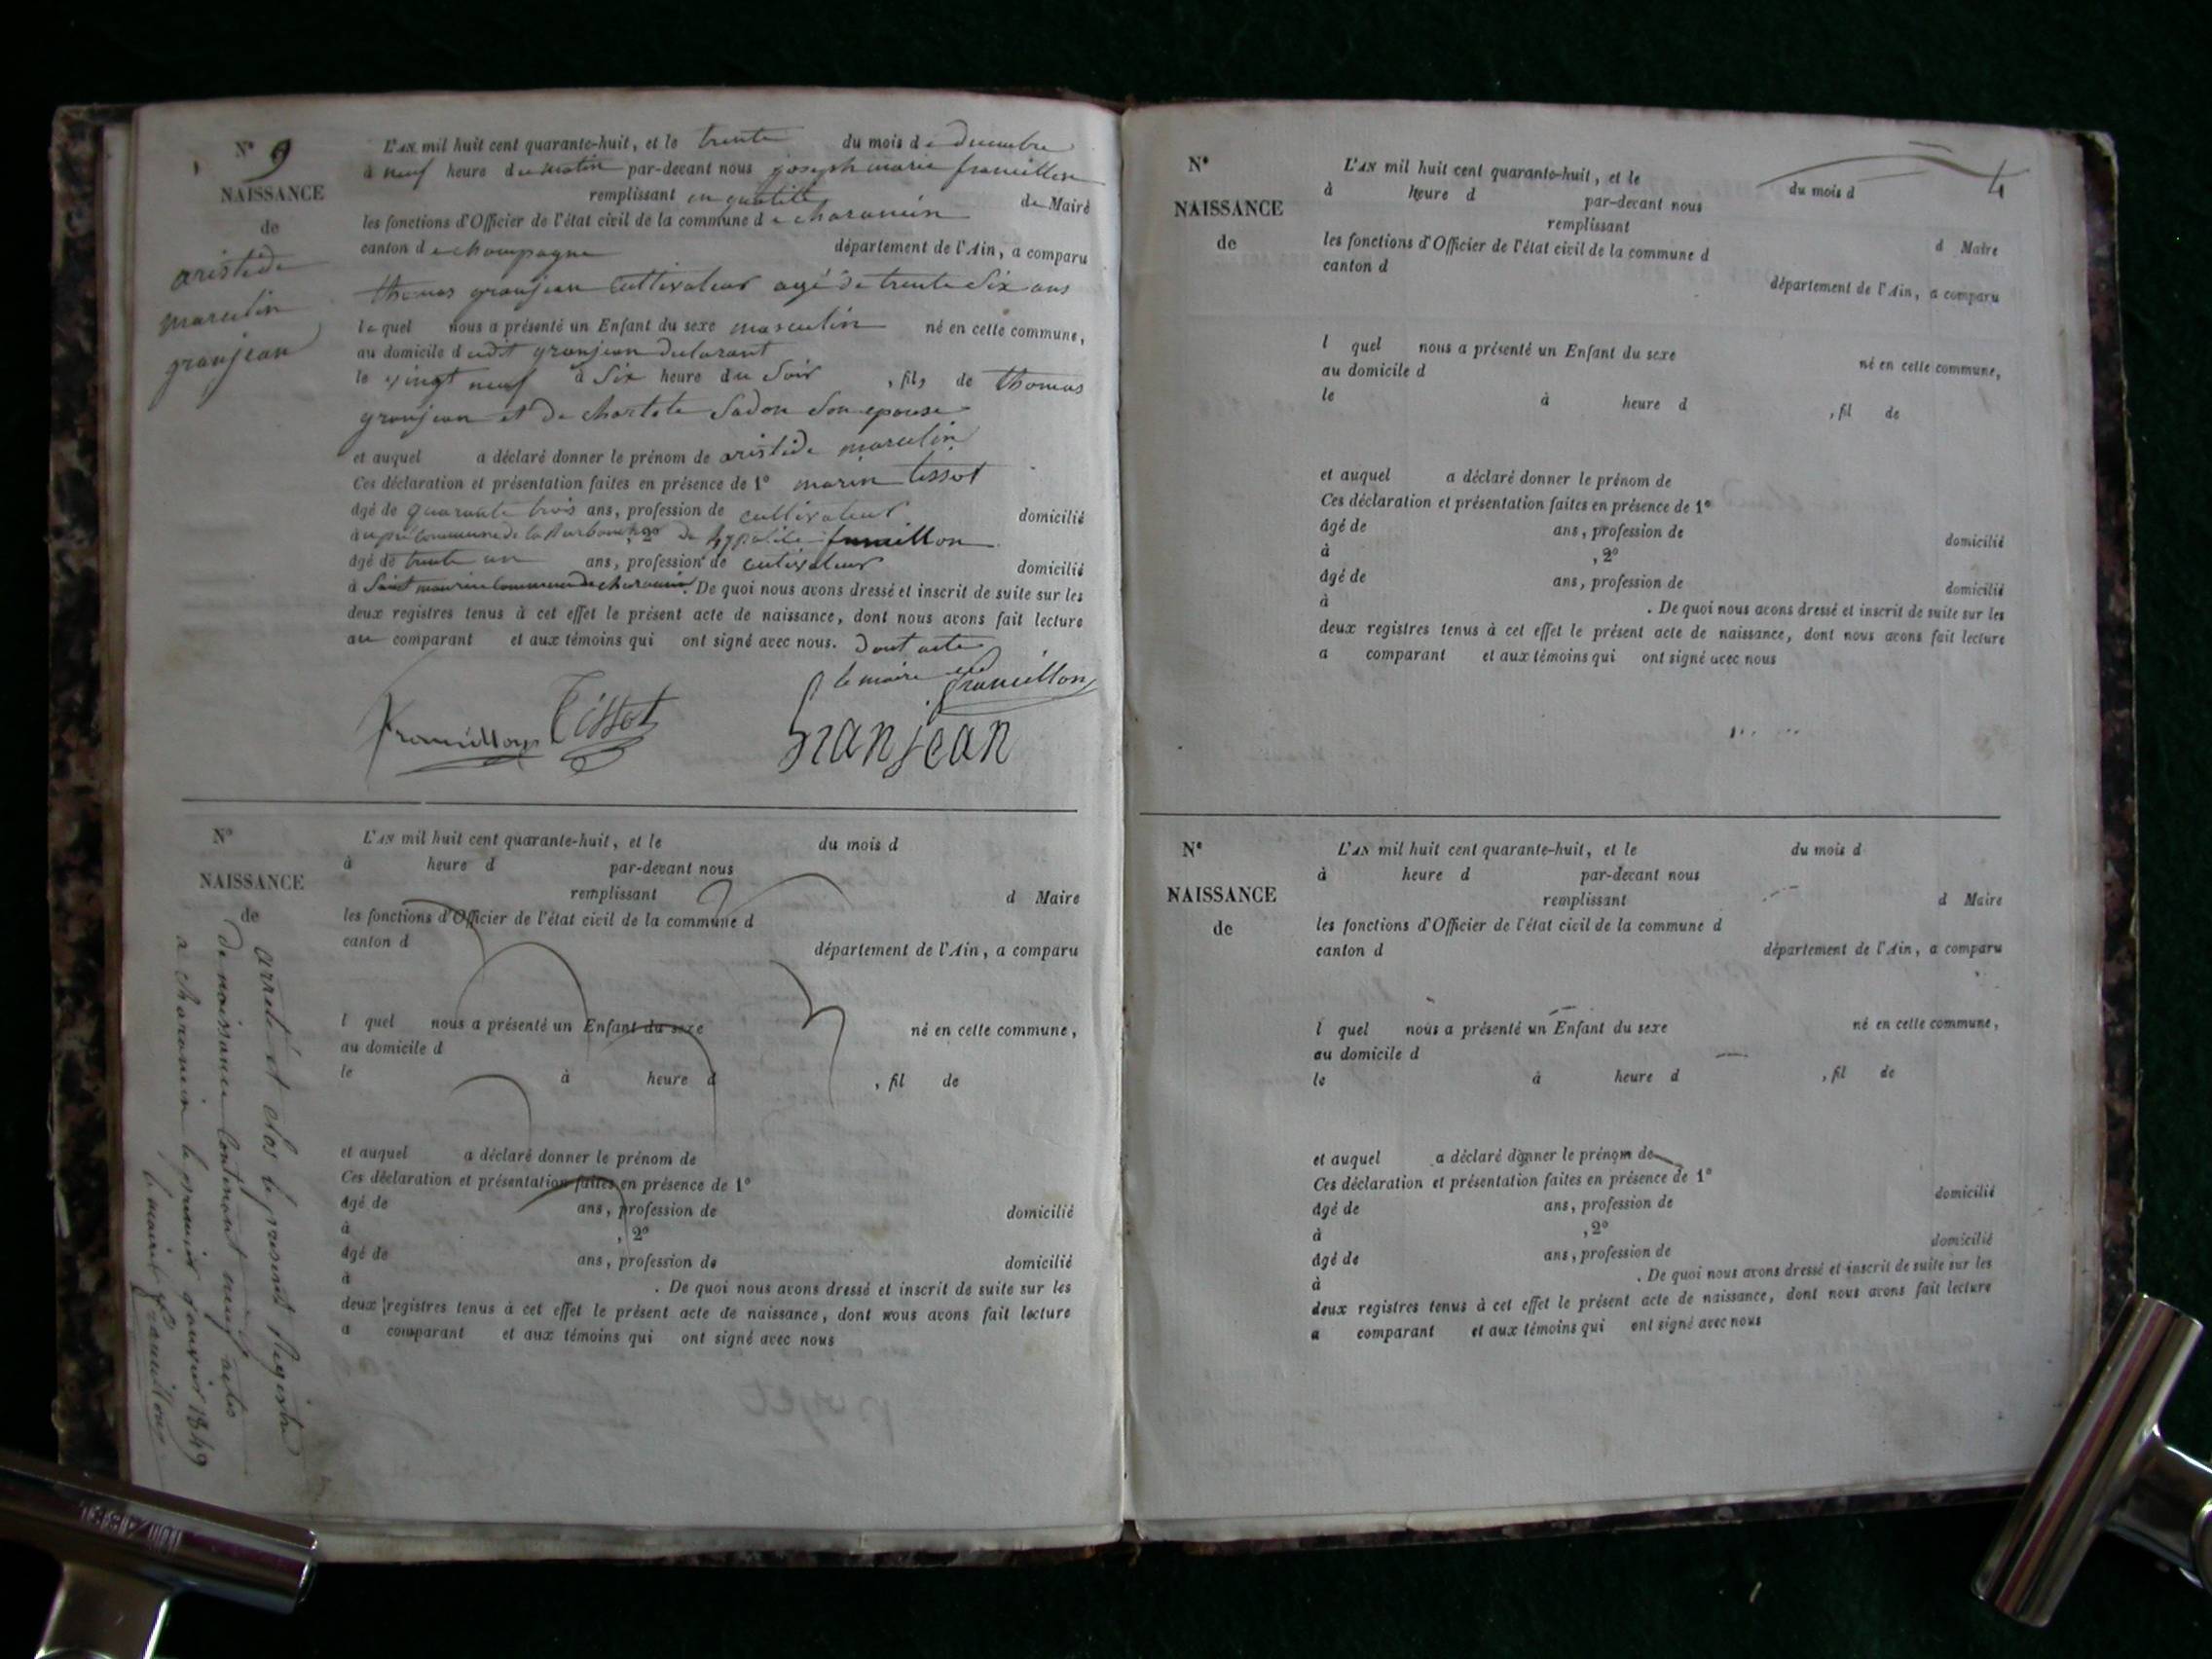 N° 9
NAISSANCE
de
aristide
marcelin
granjean
L'AN mil huit cent quarante-huit, et le trente du mois de decembre
à neuf heure du matin par-devant nous joseph marie francillon
remplissant en qualité de Maire
les fonctions d'Officier de l'état civil de la commune de charancin
canton de champagne département de l'Ain, a comparu
thomas granjean Cultivateur agé de trente Six ans
lequel nous a présenté un Enfant du sexe masculin né en cette commune,
au domicile dudit granjean declarant
le vingt neuf à Six heure du Soir , fils de thomas
granjean et de charlote Sadon Son epouse
et auquel a déclaré donner le prénom de aristide marcelin
Ces déclaration et présentation faites en présence de 1° marin tissot
âgé de quarante trois ans, profession de cultivateur domicilié
commune de , 2° de hypolite francillon
âgé de trente un ans, profession de cultivateur domicilié
à Saint maurice Commune de charancin. De quoi nous avons dressé et inscrit de suite sur les
deux registres tenus à cet effet le présent acte de naissance, dont nous avons fait lecture
au comparant et aux témoins qui ont signé avec nous. Dont acte
le maire francillon
francillon Tissot Granjean
N°
NAISSANCE
de
L'AN mil huit cent quarante-huit, et le du mois d
à heure d par-devant nous
remplissant d Maire
les fonctions d'Officier de l'état civil de la commune d
canton d département de l'Ain, a comparu
l quel nous a présenté un Enfant du sexe né en cette commune,
au domicile d
le à heure d , fil de
et auquel a déclaré donner le prénom de
Ces déclaration et présentation faites en présence de 1°
âgé de ans, profession de domicilié
à , 2°
âgé de ans, profession de domicilié
à . De quoi nous avons dressé et inscrit de suite sur les
deux registres tenus à cet effet le présent acte de naissance, dont nous avons fait lecture
a comparant et aux témoins qui ont signé avec nous
arrêté et clos le present Registre
De naissance Contenant neuf actes
a charancin le premier janvier 1849
le maire francillon
4
N°
NAISSANCE
de
L'AN mil huit cent quarante-huit, et le du mois d
à heure d par-devant nous
remplissant d Maire
les fonctions d'Officier de l'état civil de la commune d
canton d département de l'Ain, a comparu
l quel nous a présenté un Enfant du sexe né en cette commune,
au domicile d
le à heure d , fil de
et auquel a déclaré donner le prénom de
Ces déclaration et présentation faites en présence de 1°
âgé de ans, profession de domicilié
à , 2°
âgé de ans, profession de domicilié
à . De quoi nous avons dressé et inscrit de suite sur les
deux registres tenus à cet effet le présent acte de naissance, dont nous avons fait lecture
a comparant et aux témoins qui ont signé avec nous
N°
NAISSANCE
de
L'AN mil huit cent quarante-huit, et le du mois d
à heure d par-devant nous
remplissant d Maire
les fonctions d'Officier de l'état civil de la commune d
canton d département de l'Ain, a comparu
l quel nous a présenté un Enfant du sexe né en cette commune,
au domicile d
le à heure d , fil de
et auquel a déclaré donner le prénom de
Ces déclaration et présentation faites en présence de 1°
âgé de ans, profession de domicilié
à , 2°
âgé de ans, profession de domicilié
à . De quoi nous avons dressé et inscrit de suite sur les
deux registres tenus à cet effet le présent acte de naissance, dont nous avons fait lecture
a comparant et aux témoins qui ont signé avec nous